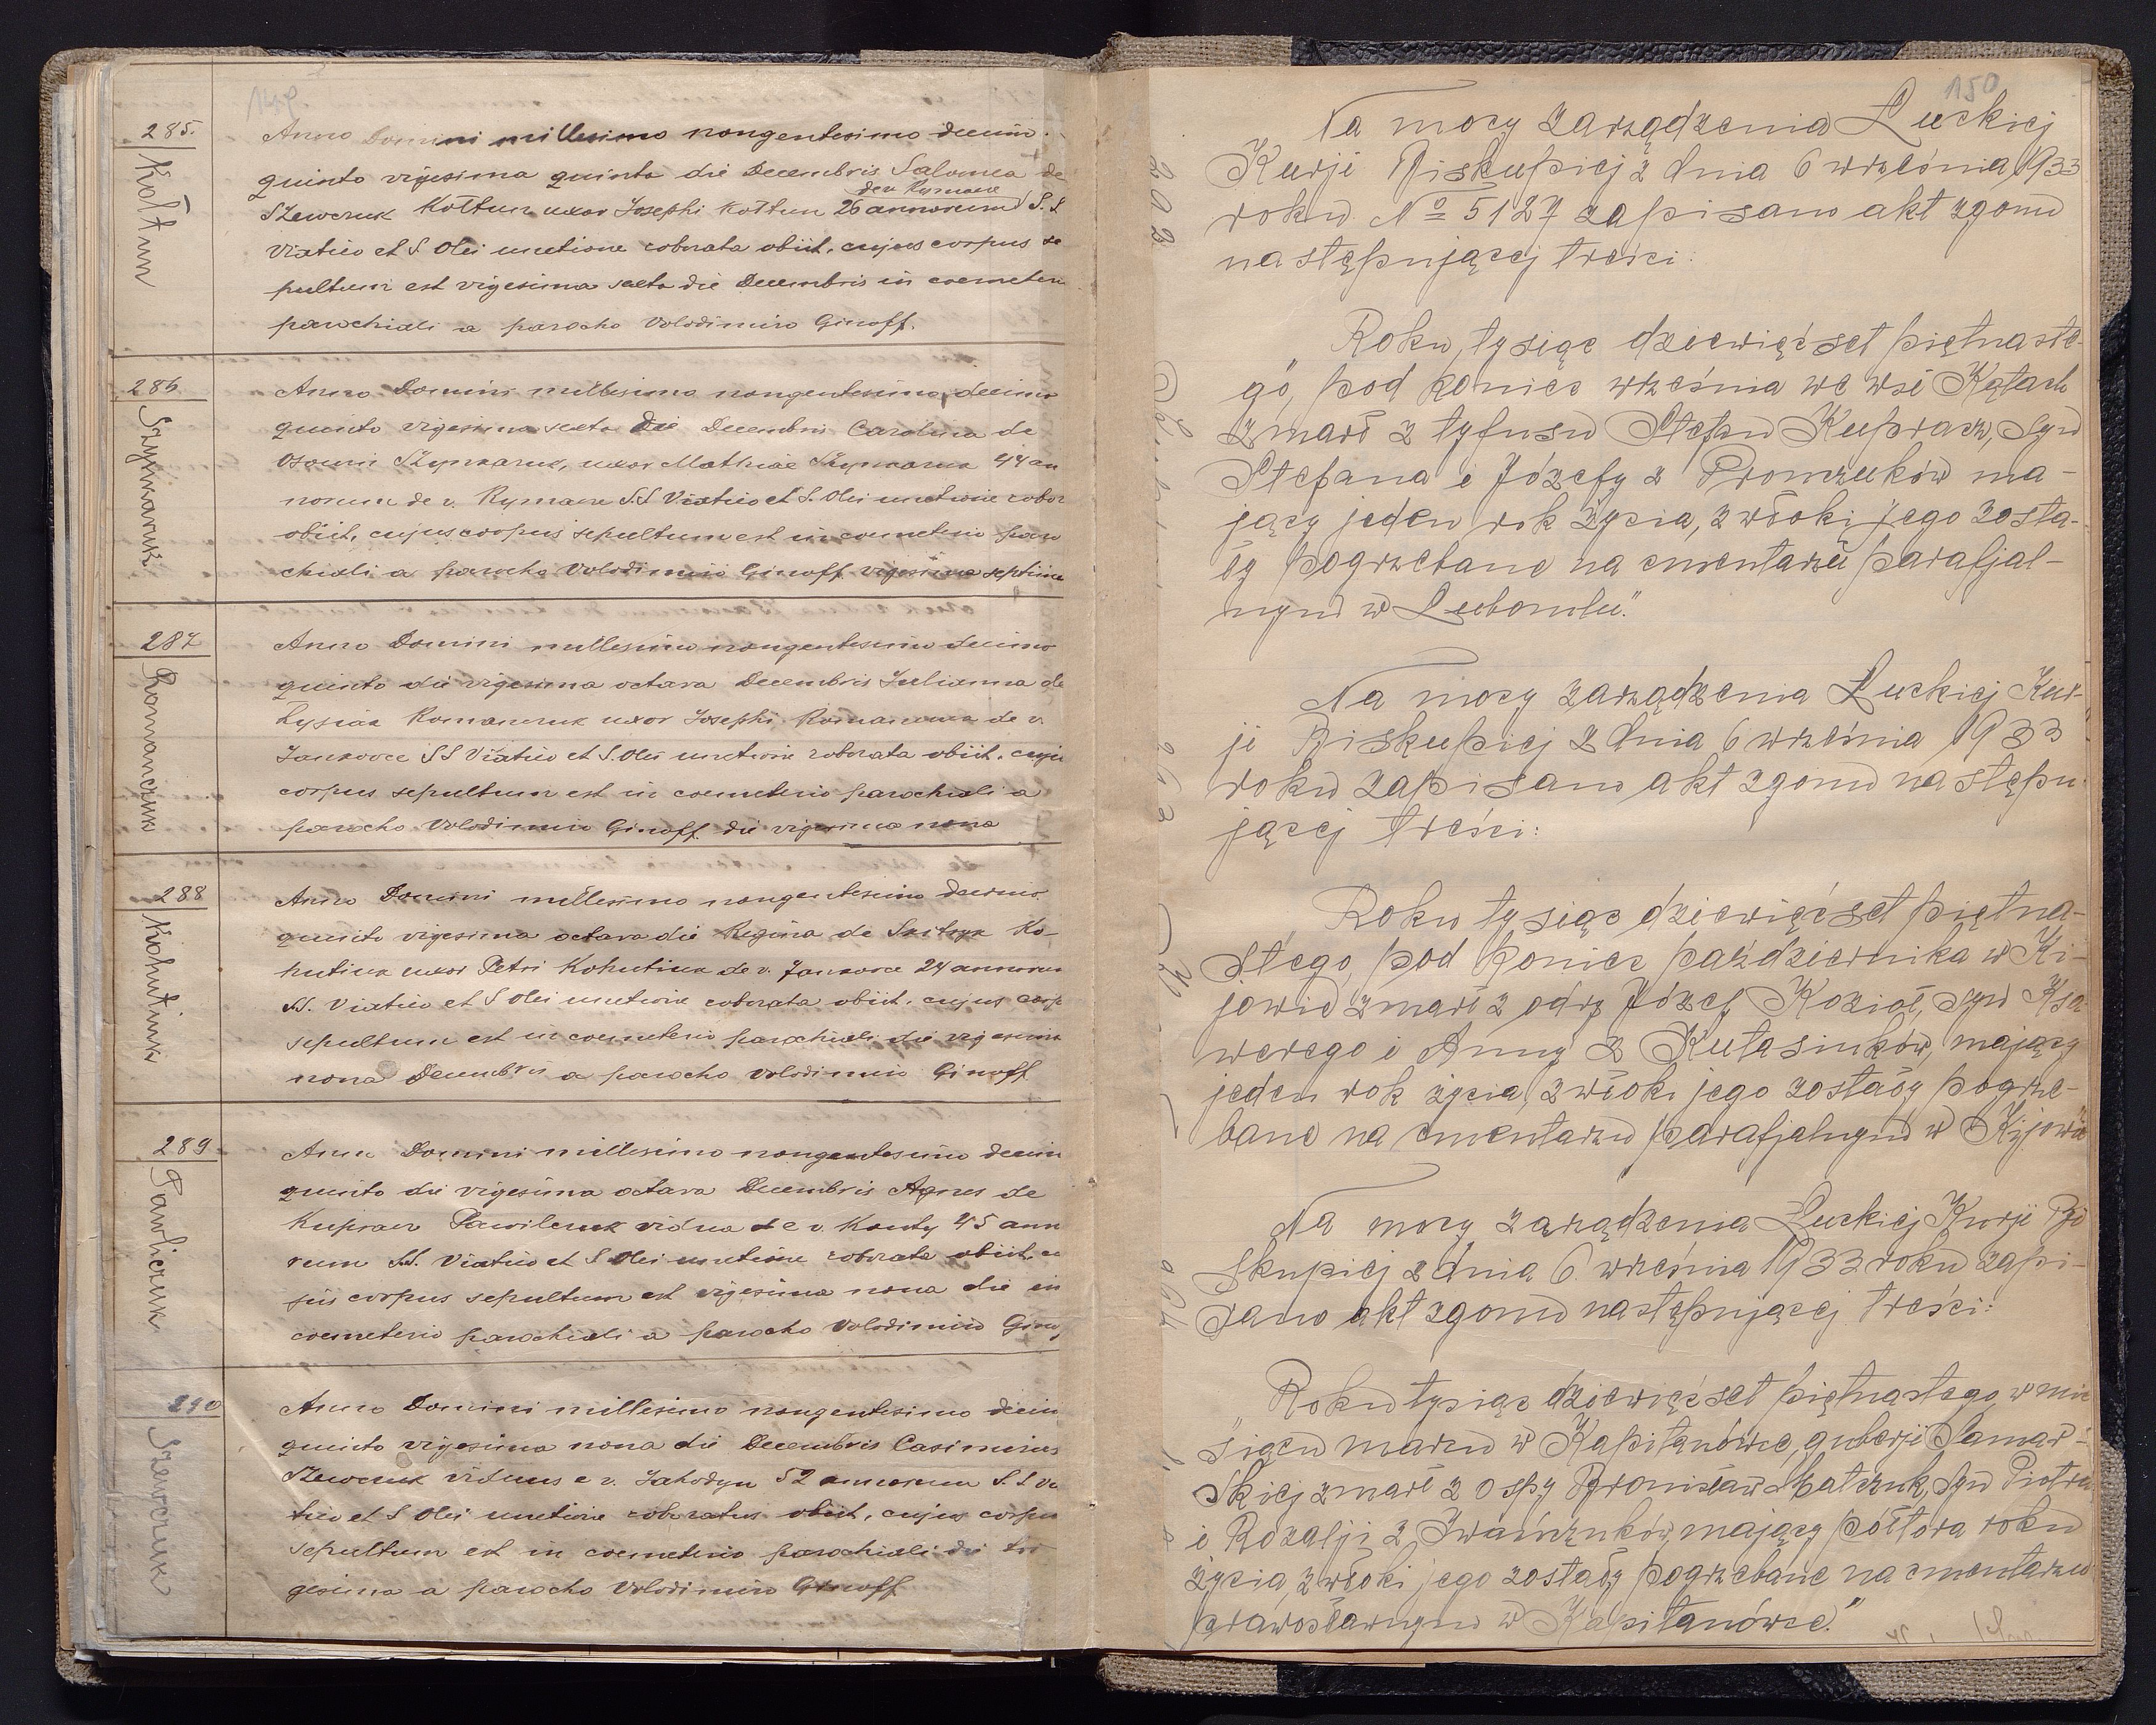 149
285.
Kołtun
Anno Domini millesimo nongentesimo decim
quinto vigesima quinta die Decembris Salomea de
de v. Rymacze
Szewczuk Kołtun uxor Josephi Kołtun 26 annorum S. S.
Viatico et S. Olei unctione roborata obiit, cujus corpus se
pultum est vigesima sexta die Decembris in coemeteri
parochiali a parocho Volodimiro Ginoff.
286
Szynkaruk
Anno Domini millesimo nongentesimo decimo
quinto vigesima sexta die Decembris Carolina de
Szynkaruk, uxor Mathiae Szynkaruk 44 an
norum de v. Rymacze S.S Viatico et S. Olei unctione robor
obiit, cujus corpus sepultum est in coemeterio paro
chiali a parocho Volodimiro Ginoff vigesima septima
287
Romanczuk
Anno Domini millesimo nongentesimo decimo
quinto die vigesima octava Decembris Julianna de
Łysiak Romanczuk uxor Josephi Romanczuk de v.
Jankovce S S Viatico et S. Olei unctione roborata obiit, cuju
corpus sepultum est in coemeterio parochiali a
parocho Volodimiro Ginoff die vigesima nona
288
Kohutiuk
Anno Domini millesimo nongentesimo decimo
quinto vigesima octava die Regina de Ko-
hutiuk uxor Petri Kohutiuk de v. Jankovce 24 annorum
SS. Viatico et S Olei unctione roborata obiit, cujus corp
sepultum est in coemeterio parochiali die vigesima
nona Decembris a parocho Volodimiro Ginoff
289
Pawliczuk
Anno Domini millesimo nongentesimo decim
quinto die vigesima octava Decembris Agnes de
Kupracz Pawilczuk vidua de v. Konty 45 ann
rum S.S. Viatico et S Olei unctione roborata obiit, cu
jus corpus sepultum est vigesima nona die in
coemeterio parochiali a parocho Volodimiro Ginof
290
Szewczuk
Anno Domini millesimo nongentesimo decim
quinto vigesima nona die Decembris Casimirus
Szewczuk viduus e v. Jahodyn 52 annorum S. S Via
tico et S Olei unctione roboratus obiit, cujus corpus
sepultum est in coemeterio parochiali die tri
gesima a parocho Volodimiro Ginoff
150
Na mocy zarządzenia Łuckiej
Kurji Biskupiej z dnia 6 września 1933
roku No 5127 zapisano akt zgonu
następującej treści:
„Roku tysiąc dziewięćset piętnaste-
go, pod koniec września we wsi Kątach
zmarł z tyfusu Stefan Kupracz, syn
Stefana i Józefy z Promczuków ma-
jący jeden rok życia, zwłoki jego zosta-
ły pogrzebane na cmentarzu parafjal-
nym w Lubomlu."
Na mocy zarządzenia Łuckiej Kur-
ji Biskupiej z dnia 6 września 1933
roku zapisano akt zgonu następu-
jącej treści:
Roku tysiąc dziewięćset piętna-
stego, pod koniec października w Ki-
jowie zmarł z odry Józef Kozioł, syn Ksa-
werego i Anny z Kutasiuków, mający
jeden rok życia, zwłoki jego zostały pogrze-
bane na cmentarzu parafjalnym w Kijowie
Na mocy zarządzenia Łuckiej Kurji Bi
skupiej z dnia 6 września 1933 roku zapi-
sano akt zgonu następującej treści:
„Roku tysiąc dziewięćset piętnastego, w mie
siącu marcu w Kapitanówce, guberji Samar-
skiej zmarł z ospy Bronisław Matczuk, syn Piotra
i Rozalji z Iwańczuków, mający półtora roku
życia, zwłoki jego zostały pogrzebane na cmentarzu
prawosławnym w Kapitanówce."